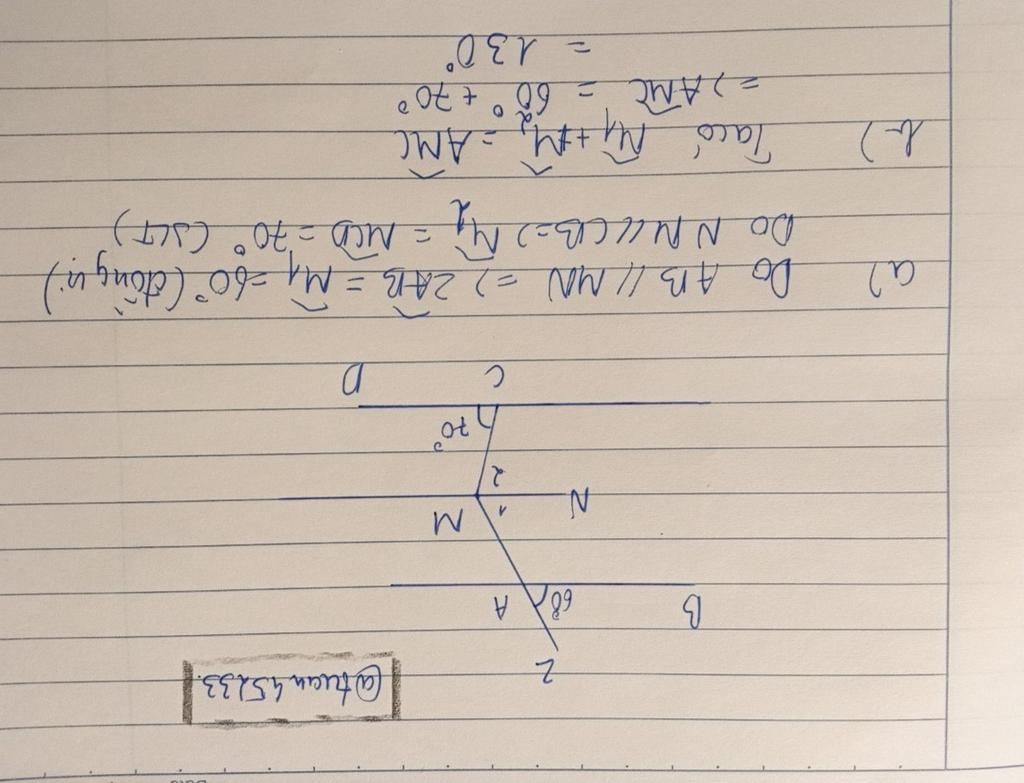 @tuan45233.
Z
B 60° A
N 1 M
2
70°
C D
a) Do AB // MN => ZAB = M1 = 60° (đồng vị)
Do NM // CB => M2 = MCD = 70° (SLT)
b) Ta có M1 + M2 = AMC
=> AMC = 60° + 70°
= 130°